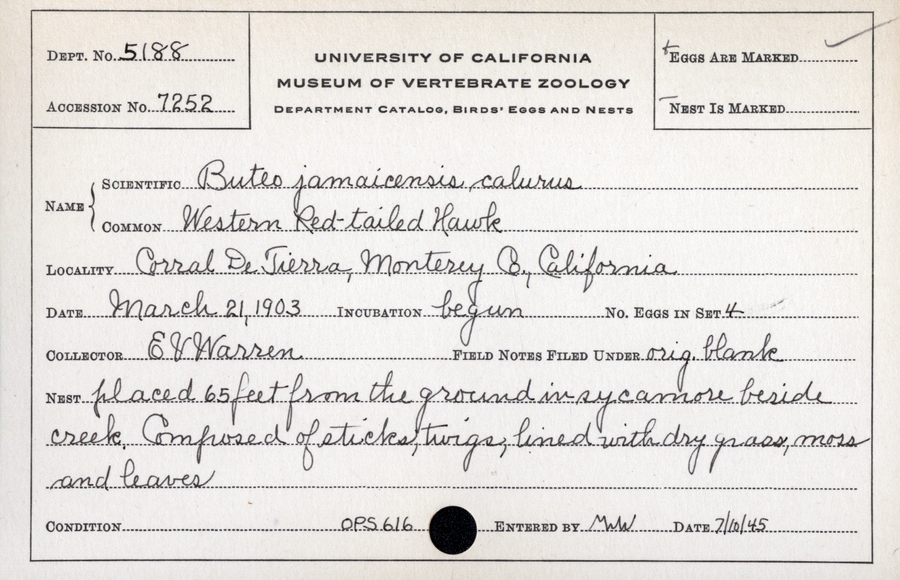 DEPT. No. 5188
ACCESSION No. 7252
UNIVERSITY OF CALIFORNIA
MUSEUM OF VERTEBRATE ZOOLOGY
DEPARTMENT CATALOG, BIRDS' EGGS AND NESTS
EGGS ARE MARKED
NEST IS MARKED
NAME
SCIENTIFIC Buteo jamaicensis calurus
COMMON Western Red-tailed Hawk
LOCALITY Corral De Tierra, Monterey Co., California
DATE March 21, 1903 INCUBATION begun No. EGGS IN SET 4
COLLECTOR E V Warren FIELD NOTES FILED UNDER orig. blank
NEST placed 65 feet from the ground in sycamore beside
creek. Composed of sticks, twigs, lined with dry grass, moss
and leaves
CONDITION OPS 616 ENTERED BY DATE 7/10/45